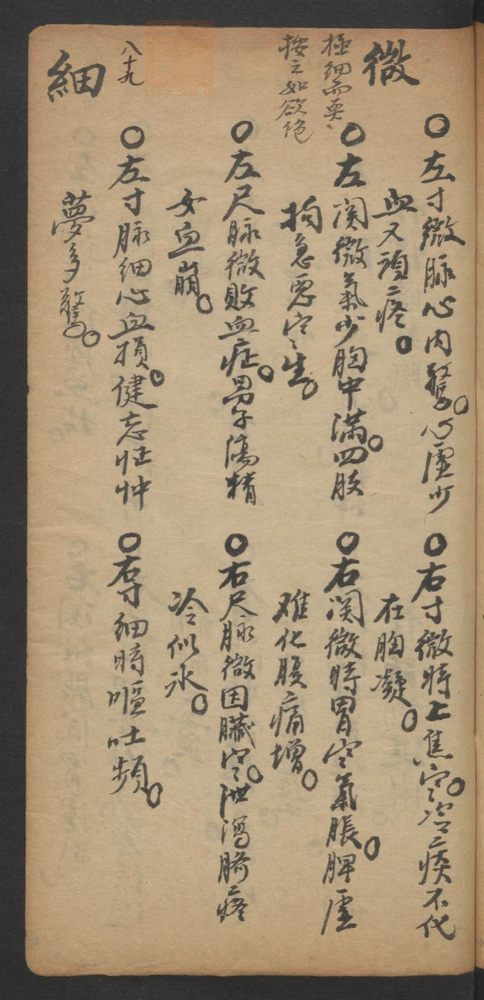 微
極細而耎
按之如欲绝
〇左寸微脉心内驚。心虛少
血又頭疼。
〇右寸微時上焦寒。冷痰不化
在胸凝。
〇左関微氣少胸中滿。四肢
拘急惡寒生。
〇右関微時胃寒氣脹。脾虛
难化腹痛增。
〇左尺脉微敗血症。男子傷精
女血崩。
〇右尺脉微因臟寒。泄瀉臍疼
冷似氷。
八十九
細
〇左寸脉细心血損。健忘怔忡
夢多驚。
〇右寸细時嘔吐頻。